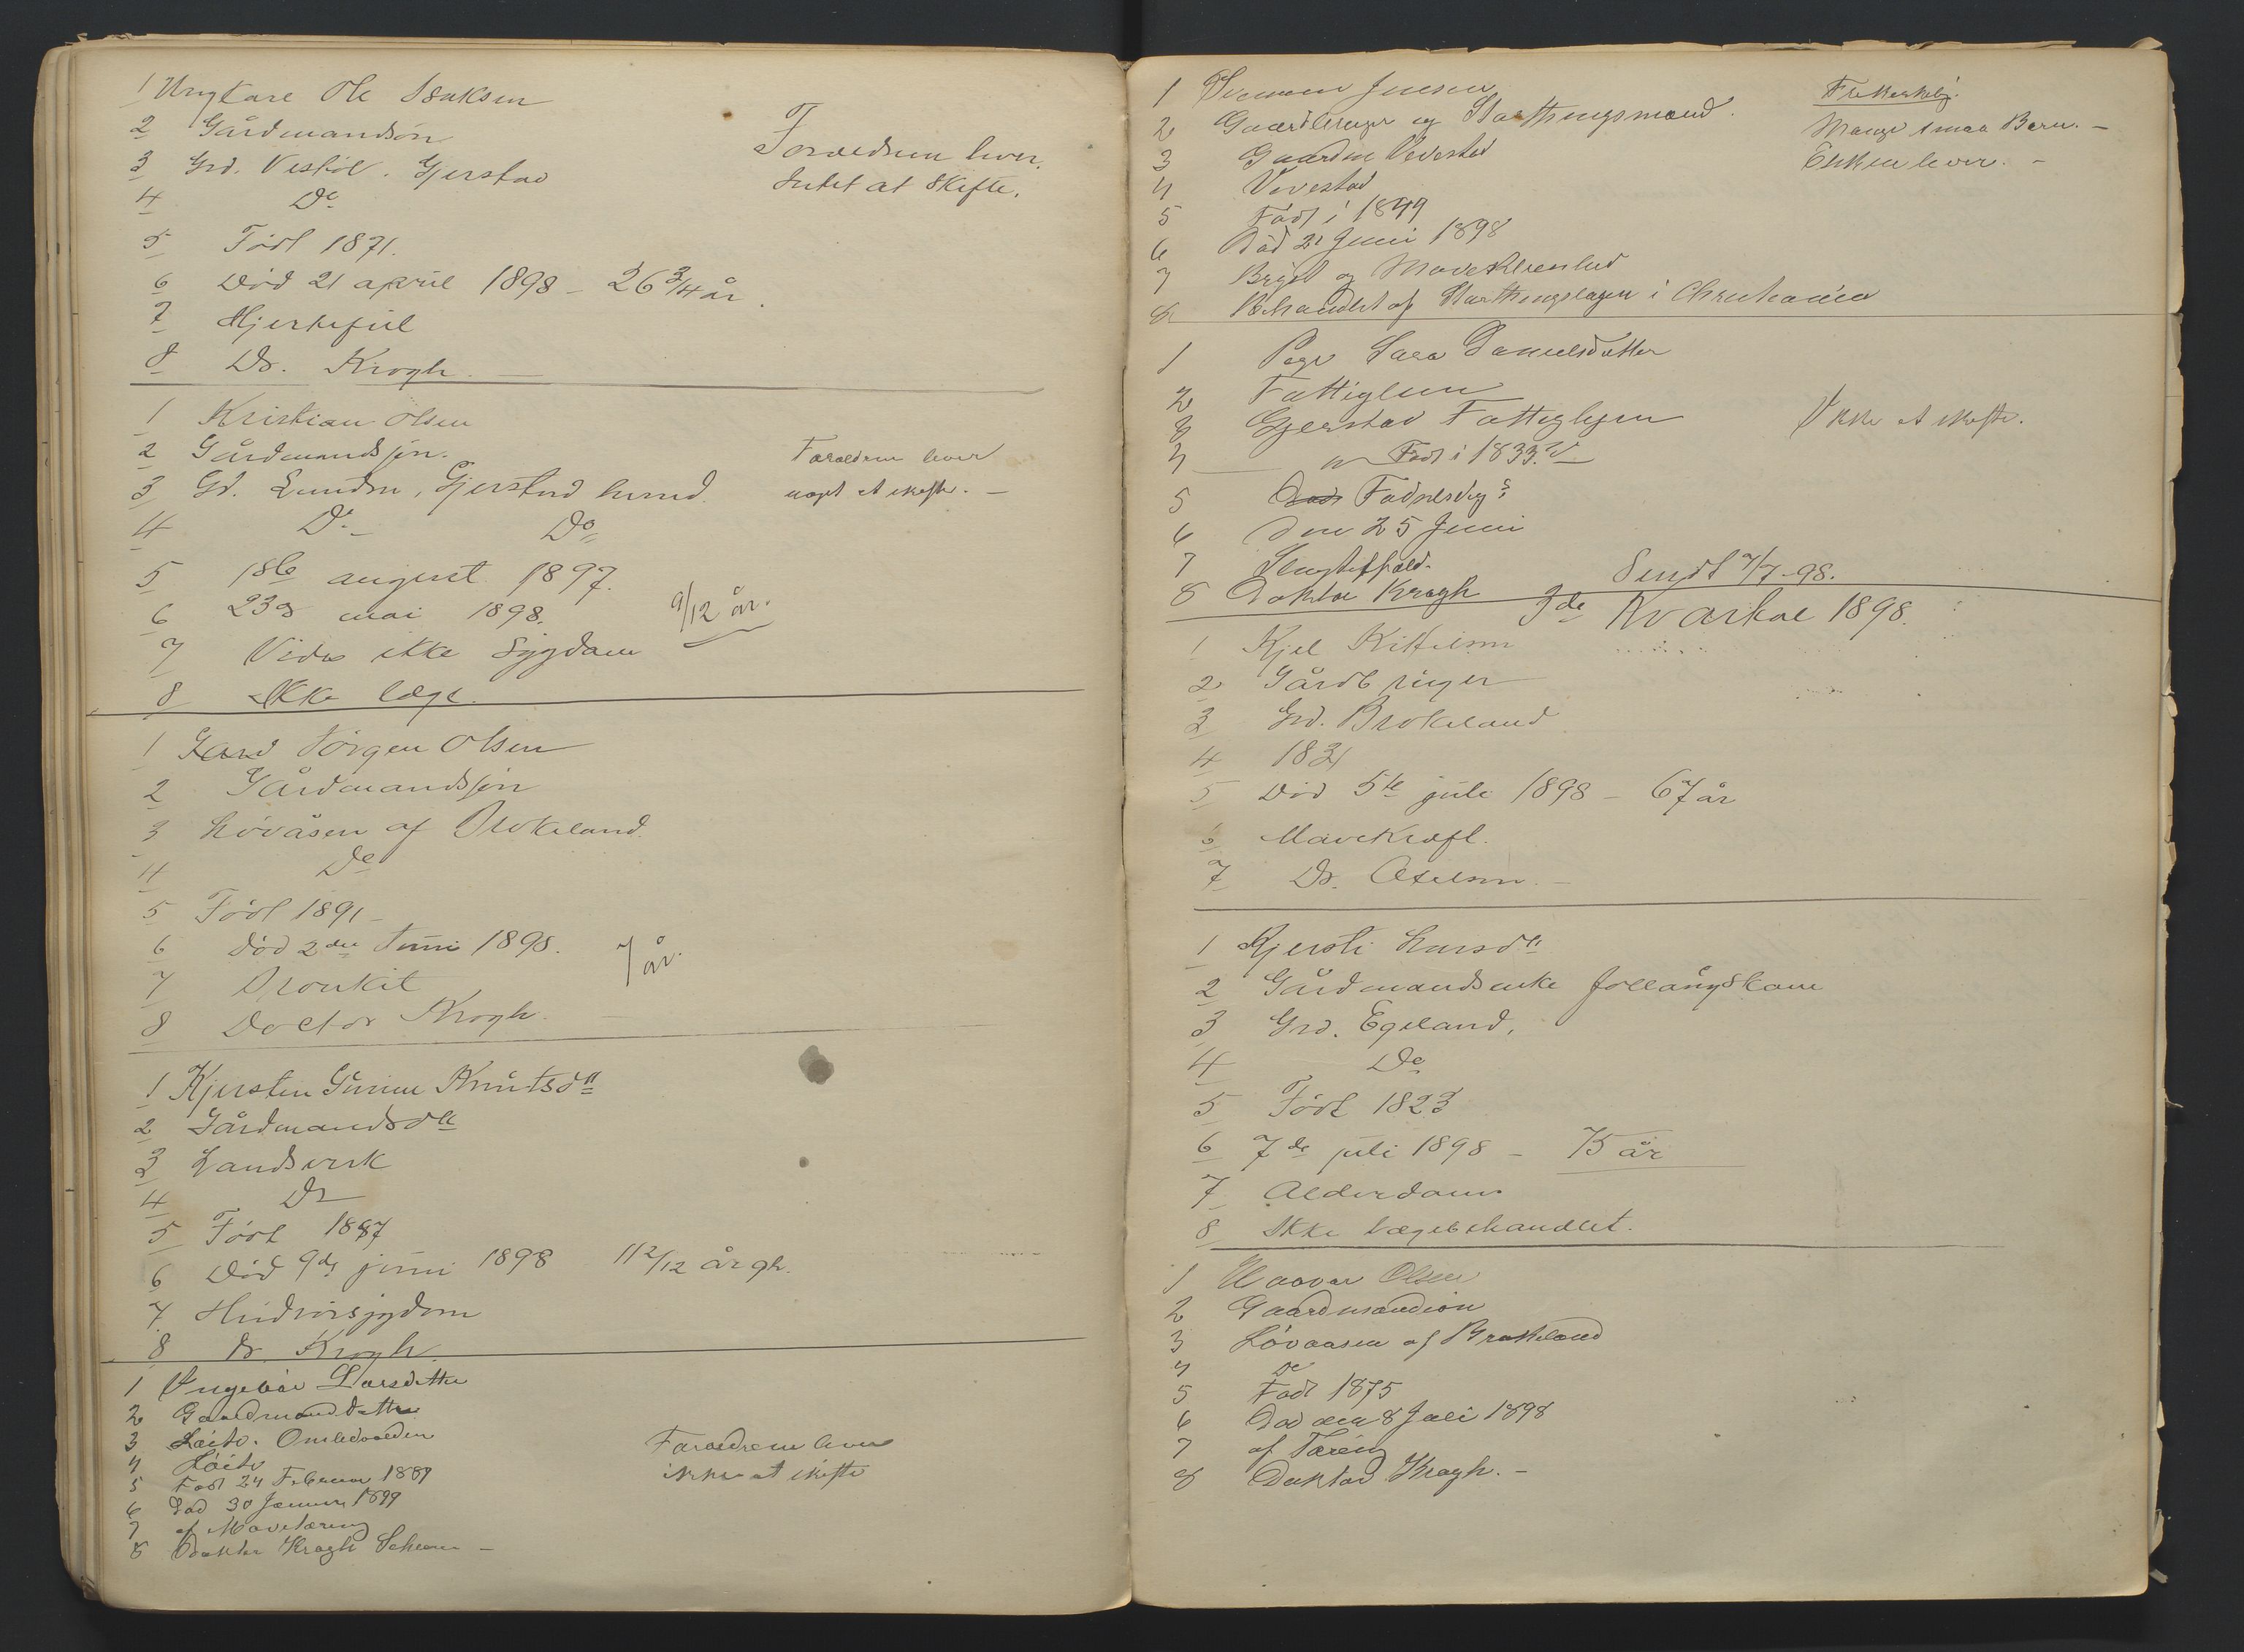 1 Ungkare Ole Isaksen
2 Gårdmandsön
3 Grd. Vestöl. Gjerstad
4 Do
5 Född 1871.
6 Död 21 april 1898 – 26 3/4 år.
7 Hjertefeil
8 Dr. Krogh. –
Foraeldrene lever.
Intet at skifte.
1 Kristian Olsen
2 Gårdmandssön.
3 Gd. Lunden, Gjerstad
4 Do – Do
5 18de august 1897.
6 23de mai 1898. 9/12 år.
7 Vides ikke Sygdom
8 Ikke læge.
Foraeldrene lever
noget at skifte. –
1 Jörgen Olsen
2 Gårdmandssön
3 Lövåsen af Brokeland.
4 Do
5 Född 1891 –
6 Död 2den Juni 1898. 7 år.
7 Bronkit
8 Doctor Krogh. –
1 Kjersten Gurine Knutsdtt
2 Gårdmandsdtt
3 Landsverk
4 Do
5 Född 1887
6 Död 9de juni 1898 11 2/12 år gl.
7
8 Dr. Krogh.
1 Ingebör Larsdatter
2 Gaardmanddatter
3 Löite.
4 Löite
5 Född 24 Februar 1889
6 Död 30 Januar 1899
7 af Mavetæring
8 Doktor Kragh
Foraeldrene lever
ikke at skifte
1 Jensen
2 Gaardbruger og Storthingsmand.
3 Gaarden Vevestad
4 Vevestad
5 Född i 1849
6 Död 21 Juni 1898
7 Bryst og
8 Behandlet af Storthingslægen i Christiania
Mange smaa Børn. –
Enken lever. –
1 Pige Sara Danielsdatter
2 Fattiglem
3 Gjerstad Fattighjem
4 Född i 1833.
5 Död Fødselsdag ?
6 den 25 Juni
7 Slagtilfæld.
8 Doktor Kragh
Ikke at skifte.
Sendt 7/7-98.
3de Kvartal 1898.
1 Kjel Kittilsen
2 Gårdbruger
3 Grd. Brokeland
4 1831
5 Död 5te juli 1898 – 67 år
6 Mavekræft.
7 Dr. Axelsen. –
1 Kjersti Larsdtt
2 Gårdmandsenke
3 Grd. Egeland.
4 Do
5 Född 1823
6 7de juli 1898 – 75 år
7 Alderdom
8 Ikke lægebehandlet.
1 Haavar Olsen
2 Gaardmandsön
3 Lövaasen af Brokeland
4 Do
5 Född 1875
6 Död den 8 Juli 1898
7 af Tæring
8 Doktor Kragh. –